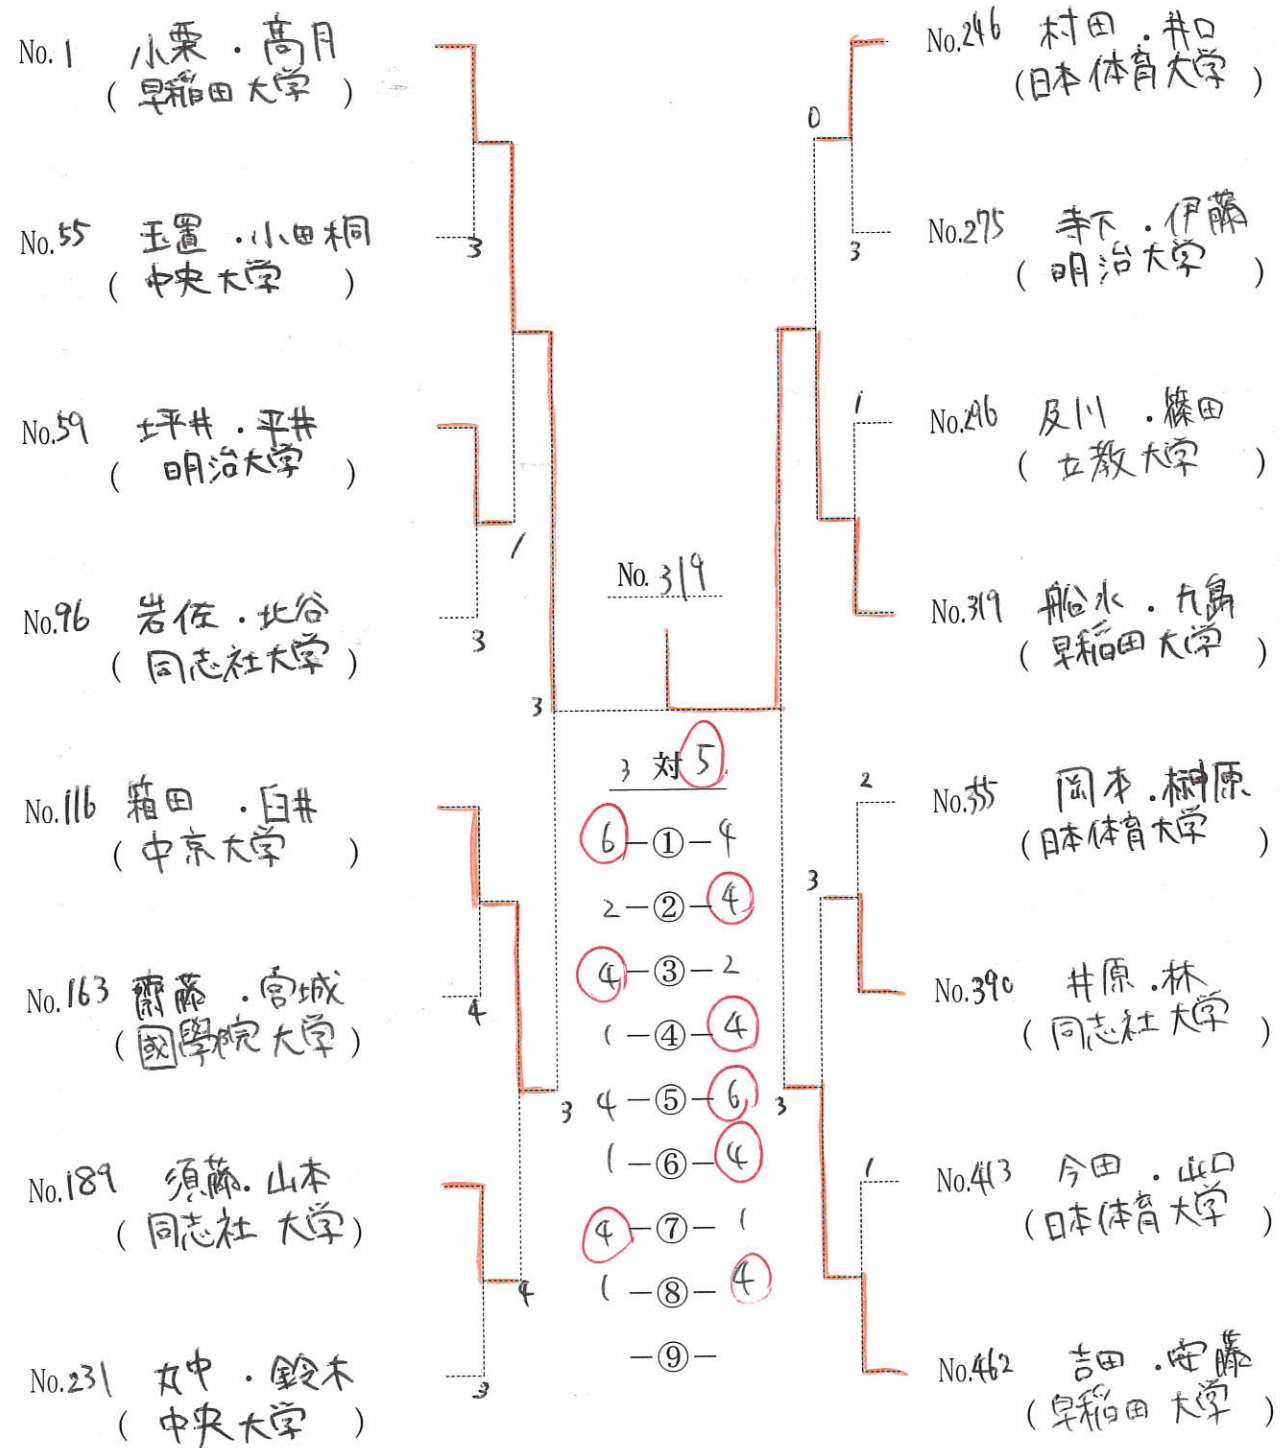 No.1 小栗・髙月
(早稲田大学)
No.55 玉置・小田桐
(中央大学)
3
No.59 坪井・平井
(明治大学)
1
No.96 岩佐・北谷
(同志社大学)
3
3
No.116 箱田・臼井
(中京大学)
No.163 齋藤・宮城
(國學院大学)
4
3
No.189 須藤・山本
(同志社大学)
4
No.231 丸中・鈴木
(中央大学)
3
No.319
3 対 5
6-①-4
2-②-4
4-③-2
1-④-4
4-⑤-6
1-⑥-4
4-⑦-1
1-⑧-4
-⑨-
No.246 村田・井口
(日本体育大学)
0
No.275 寺下・伊藤
(明治大学)
3
No.296 及川・篠田
(立教大学)
1
No.319 船水・九島
(早稲田大学)
No.355 岡本・榊原
(日本体育大学)
2
3
No.390 井原・林
(同志社大学)
3
No.413 今田・山口
(日本体育大学)
1
No.462 吉田・安藤
(早稲田大学)